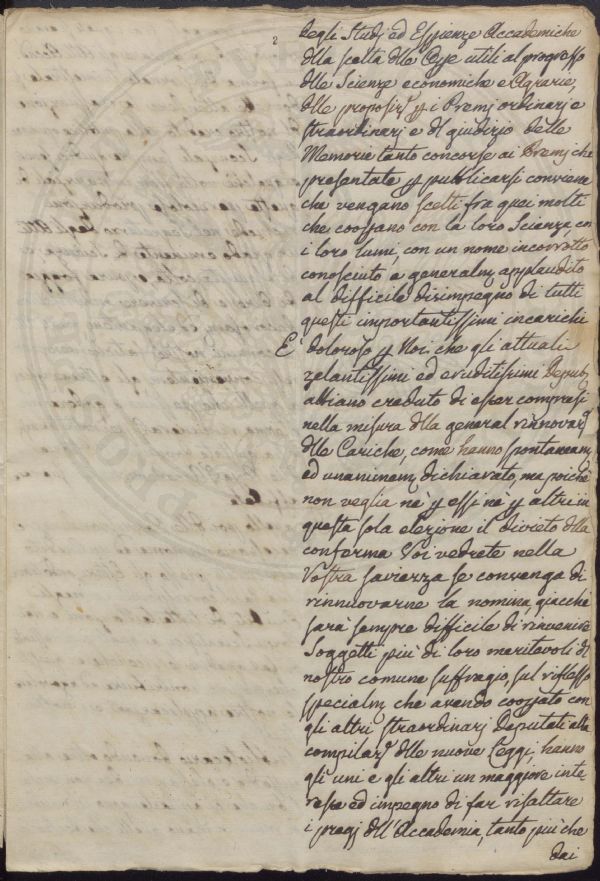 2
degli Studj ed Esperienze Accademiche
alla scelta dlle Cose utili al progresso
dlle Scienze economiche e Agrarie,
dlle proposiz.i p i Premj ordinarj e
straordinarj e dl giudizio delle
Memorie tanto concorse ai Premj che
presentate p publicarsi conviene
che vengano scelti fra quei molti
che coopano con la loro Scienza, con
i loro lumi, con un nome incorrotto
conosciuto e generalm applaudito
al difficile disimpegno di tutti
questi importantissimi incarichi
E' doloroso p Noi, che gli attuali
zelantissimi ed eruditissimi Deputi
abbiano creduto di esser compresi
nella misura dlla general rinnovaz.e
dlle Cariche, come hanno spontaneam
ed unanimem dichiarato, ma poichè
non veglia nè p essi nè p altri in
questa sola elezione il divieto dlla
conferma Voi vedrete nella
Vostra saviezza se convenga di
rinnuovarne la nomina, giacchè
sarà sempre difficile di rinvenire
Soggetti più di loro meritevoli dl
nostro comune suffragio, sul riflesso
specialm che avendo coopato con
gli altri straordinarj Deputati alla
compilaz.e dlle nuove Leggi, hanno
gli uni e gli altri un maggiore inte-
resse ed impegno di far risaltare
i pregj dll'Accademia, tanto più che
dai